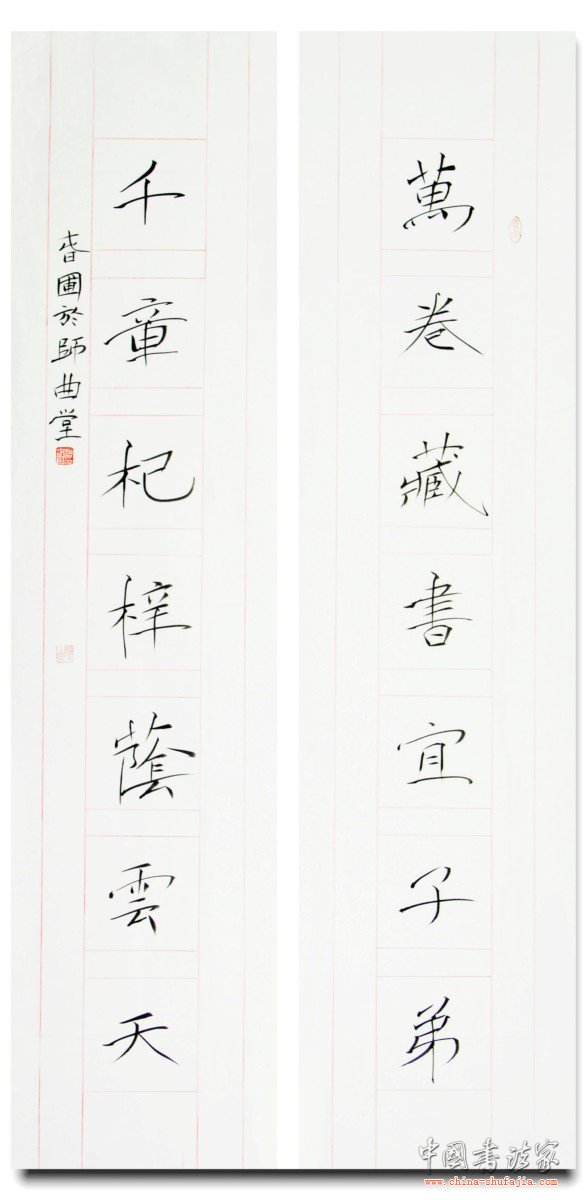 萬卷藏書宜子弟
千章杞梓蔭雲天
春圃於師曲堂
中國書法家
www.china-shufajia.com